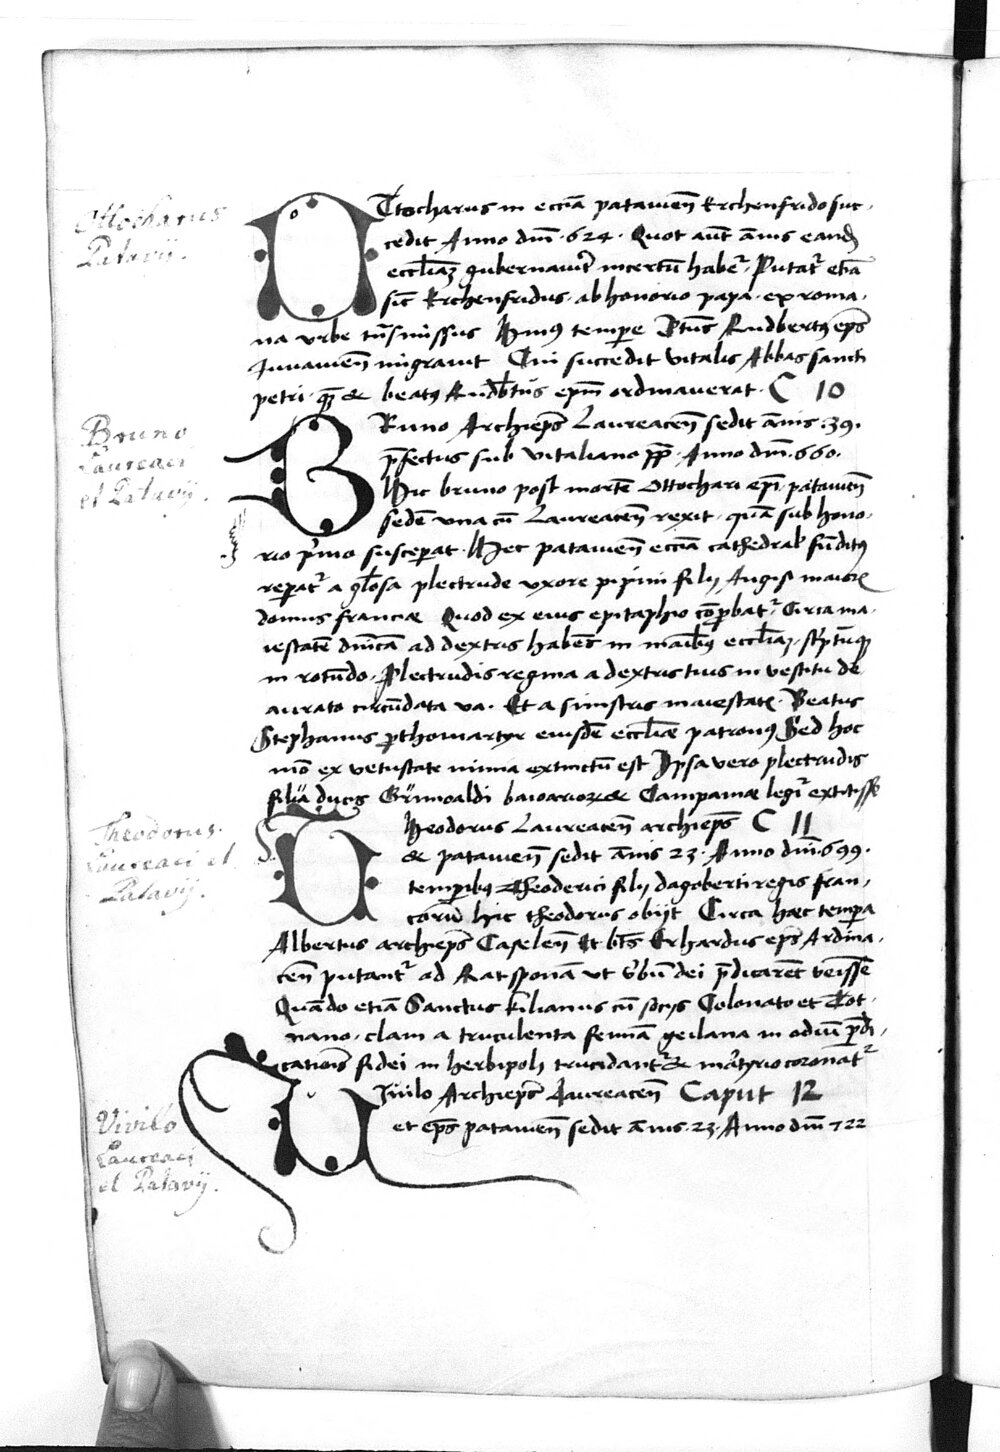 Ottocharus
Patavij.
OTtocharus in eccıa patauien̄ Erchenfrido suc-
cedit Anno dnī · 624 · Quot aūt annis eand̄
ecclīaȝ gubernauit incertū habet̄ · Putat̄ etiā
sic̄ Erchenfridus · ab honorio papa · ex roma-
na vrbe trāsmissus Huiꝰ tempore Btūs Rudbertꝰ ep̄s
Iuuauien̄ migrauit Cui succedit Vitalis Abbas sancti
petri · quē & beatꝰ Rudbtūs ep̄m ordinauerat · C 10
Bruno
Laureaci
et Patavij.
BRuno Archiep̄s Laureacen̄ sedit annis · 39 ·
p̄fectus sub vitaliano pp̄ · Anno dnī · 660 ·
Hic bruno post mortē Ottochari ep̄i patauien̄
sedē vna cū Laureacen̄ rexit · quā sub hono-
rio p̄mo susceperat · Hec patauien̄ eccıa cathedral̄ fūditꝰ
reparat̄ a gl̄osa plectrude vxore pipini filij Angisi maiorꝭ
domus franciæ Quod ex eius epitaphio cōprobat̄ · Circa ma-
iestatē dnīcā ad dextris habēs in manibꝰ ecclīaȝ · scriptūqꝫ
in rotūdo · Plectrudis regina a dextris tuis in vestitu de
aurato circūdata va · Et a sinistris maiestatꝭ · Beatus
Stephanus prthomartyr eiusdē ecclīæ patronꝰ Sed hoc
mō ex vetustate nimia extinctū est Ipsa vero plectrudis
filia ducis Grimoaldi baioarioꝝ & Campaniæ legit̄ extitisse
Theodorus.
Laureaci et
Patavij.
THeodorus Laureacen̄ archiep̄s C 11
& patauien̄ sedit annis 23 · Anno dnī · 699 ·
temporibꝰ Theoderici filij dagoberti regis fran-
corū hic theodorus obijt Circa hæc tempora
Albertus archiep̄s Caselen̄ Et bt̄s Erhardus ep̄s Ardina-
cen̄ putant̄ ad Ratisponā vt v̄bū dei p̄dicarēt venisse
Quādo etiā Sanctus kilianus cū socijs Colonato et Tot-
nano · clam a truculenta femīa geilana in odiū p̄di-
cationis fidei in herbipoli trucidant̄ & martyrio coronāt̄
Vivilo
Laureaci
et Patavij.
VIuilo Archiep̄s Laureacen̄ Caput 12
et ep̄s patauien̄ sedit annis · 23 · Anno dnī 722